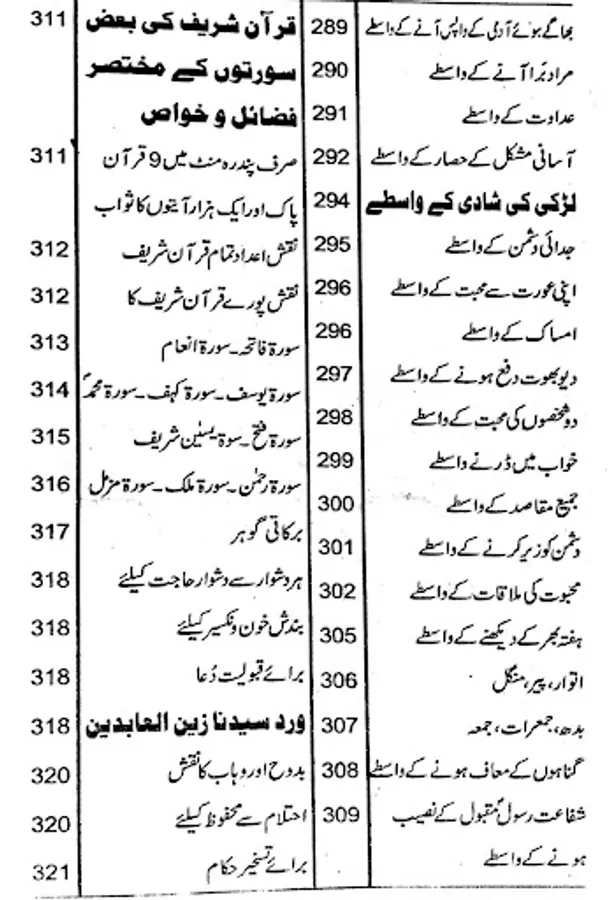 بھاگے ہوئے آدمی کے واپس آنے کے واسطے 289
مراد بر آنے کے واسطے 290
عداوت کے واسطے 291
آسانی مشکل کے حصار کے واسطے 292
لڑکی کی شادی کے واسطے 294
جدائی دشمن کے واسطے 295
اپنی عورت سے محبت کے واسطے 296
امساک کے واسطے 296
دیو بھوت دفع ہونے کے واسطے 297
دو شخصوں کی محبت کے واسطے 298
خواب میں ڈرنے واسطے 299
جمیع مقاصد کے واسطے 300
دشمن کو زیر کرنے کے واسطے 301
محبوت کی ملاقات کے واسطے 302
ہفتہ بھر کے دیکھنے کے واسطے 305
اتوار، پیر، منگل 306
بدھ، جمعرات، جمعہ 307
گناہوں کے معاف ہونے کے واسطے 308
شفاعت رسولؐ مقبول کے نصیب 309
ہونے کے واسطے
قرآن شریف کی بعض 311
سورتوں کے مختصر
فضائل و خواص
صرف پندرہ منٹ میں 9 قرآن 311
پاک اور ایک ہزار آیتوں کا ثواب
نقش اعداد تمام قرآن شریف 312
نقش پورے قرآن شریف کا 312
سورۃ فاتحہ۔ سورۃ انعام 313
سورۃ یوسف۔ سورۃ کہف۔ سورۃ محمدؐ 314
سورۃ فتح۔ سوۃ یسٰین شریف 315
سورۃ رحمٰن۔ سورۃ ملک۔ سورۃ مزمل 316
برکاتی گوہر 317
ہر دشوار سے دشوار حاجت کیلئے 318
بندش خون و نکسیر کیلئے 318
برائے قبولیت دُعا 318
ورد سیدنا زین العابدین 318
بدوح اور وہاب کا نقش 320
احتلام سے محفوظ کیلئے 320
برائے تسخیر حکام 321